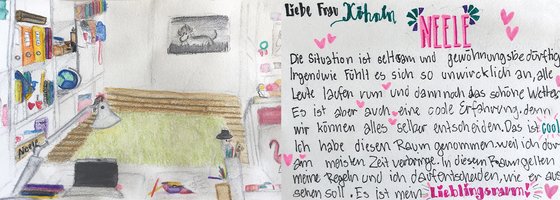 Neele
Liebe Frau Köhaln
NEELE
Die Situation ist seltsam und gewöhnungsbedürftig
Irgendwie Fühlt es sich so unwirklich an, alle
Leute laufen rum und dann noch das schöne Wetter.
Es ist aber auch eine coole Erfahrung, denn
wir können alles selber entscheiden. Das ist cool
Ich habe diesen Raum genommen, weil ich dor
am meisten Zeit verbringe. In diesem Raum gelten
meine Regeln und ich darf entscheiden, wie er aus
sehen soll. Es ist mein Lieblingsraum!